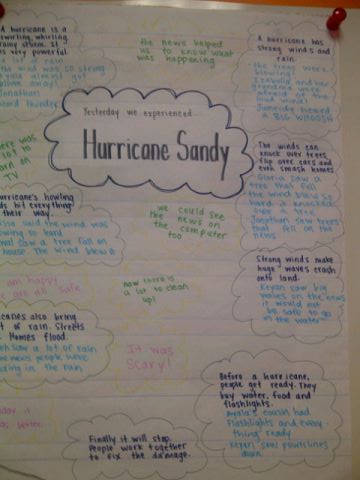 A hurricane is a
swirling, whirling
rainy storm. It
is very powerful.
a lot of rain
the wind was so strong
Ayala almost got
blown away!
Jonathan
heard thunder
the news helped
us to know what
was happening
A hurricane has
strong winds and
rain.
the trees were
blowing!
grandma were
afraid of the
loud wind!
heard
a BIG WHOOSH
Yesterday we experienced...
Hurricane Sandy
there was
a lot to
on
TV
The winds can
knock over trees,
flip over cars and
even smash homes.
Gloria saw a
tree that fell
the wind blew so
hard it knocked
over a tree
Jonathan saw trees
that fell on the
news
hurricane's howling
hit everything
their way.
said the wind was
to hard
saw a tree fall on
house. The wind blew it
we could see
the news on
the computer
too
Strong winds make
huge waves crash
onto land.
Keyan saw big
waves on the news
it would not
be safe to go
in the water
am happy
we are all safe
now there is
a lot to clean
up!
also bring
of rain. Streets
Homes flood.
saw a lot of rain
news people were
in the rain
It was
Scary!
Before a hurricane,
people get ready. They
buy water, food and
flashlights.
Ayala's cousin had
flashlights and every-
thing ready
Keyan saw powerlines
down
it
was
Finally it will stop.
People work together
to fix the damage.